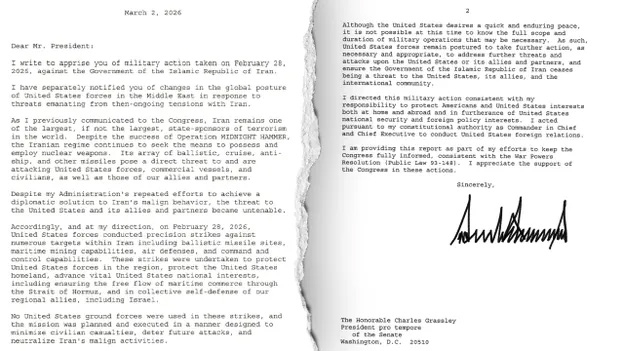 March 2, 2026
Dear Mr. President:
I write to apprise you of military action taken on February 28,
2026, against the Government of the Islamic Republic of Iran.
I have separately notified you of changes in the global posture
of United States forces in the Middle East in response to
threats emanating from then-ongoing tensions with Iran.
As I previously communicated to the Congress, Iran remains one
of the largest, if not the largest, state-sponsors of terrorism
in the world. Despite the success of Operation MIDNIGHT HAMMER,
the Iranian regime continues to seek the means to possess and
employ nuclear weapons. Its array of ballistic, cruise, anti-
ship, and other missiles pose a direct threat to and are
attacking United States forces, commercial vessels, and
civilians, as well as those of our allies and partners.
Despite my Administration's repeated efforts to achieve a
diplomatic solution to Iran's malign behavior, the threat to
the United States and its allies and partners became untenable.
Accordingly, and at my direction, on February 28, 2026,
United States forces conducted precision strikes against
numerous targets within Iran including ballistic missile sites,
maritime mining capabilities, air defenses, and command and
control capabilities. These strikes were undertaken to protect
United States forces in the region, protect the United States
homeland, advance vital United States national interests,
including ensuring the free flow of maritime commerce through
the Strait of Hormuz, and in collective self-defense of our
regional allies, including Israel.
No United States ground forces were used in these strikes, and
the mission was planned and executed in a manner designed to
minimize civilian casualties, deter future attacks, and
neutralize Iran's malign activities.
2
Although the United States desires a quick and enduring peace,
it is not possible at this time to know the full scope and
duration of military operations that may be necessary. As such,
United States forces remain postured to take further action, as
necessary and appropriate, to address further threats and
attacks upon the United States or its allies and partners, and
ensure the Government of the Islamic Republic of Iran ceases
being a threat to the United States, its allies, and the
international community.
I directed this military action consistent with my
responsibility to protect Americans and United States interests
both at home and abroad and in furtherance of United States
national security and foreign policy interests. I acted
pursuant to my constitutional authority as Commander in Chief
and Chief Executive to conduct United States foreign relations.
I am providing this report as part of my efforts to keep the
Congress fully informed, consistent with the War Powers
Resolution (Public Law 93-148). I appreciate the support of
the Congress in these actions.
Sincerely,
The Honorable Charles Grassley
President pro tempore
of the Senate
Washington, D.C. 20510